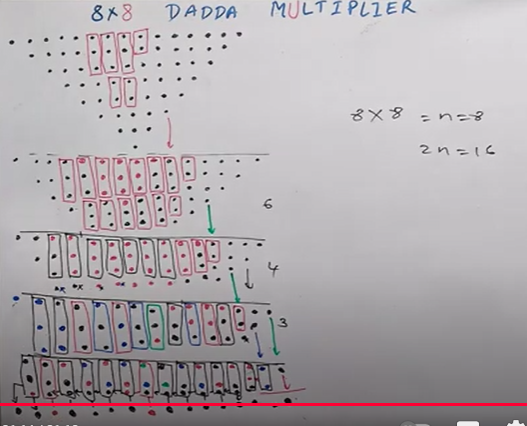 8x8 DADDA MULTIPLIER
8x8 = n=8
2n=16
6
4
3